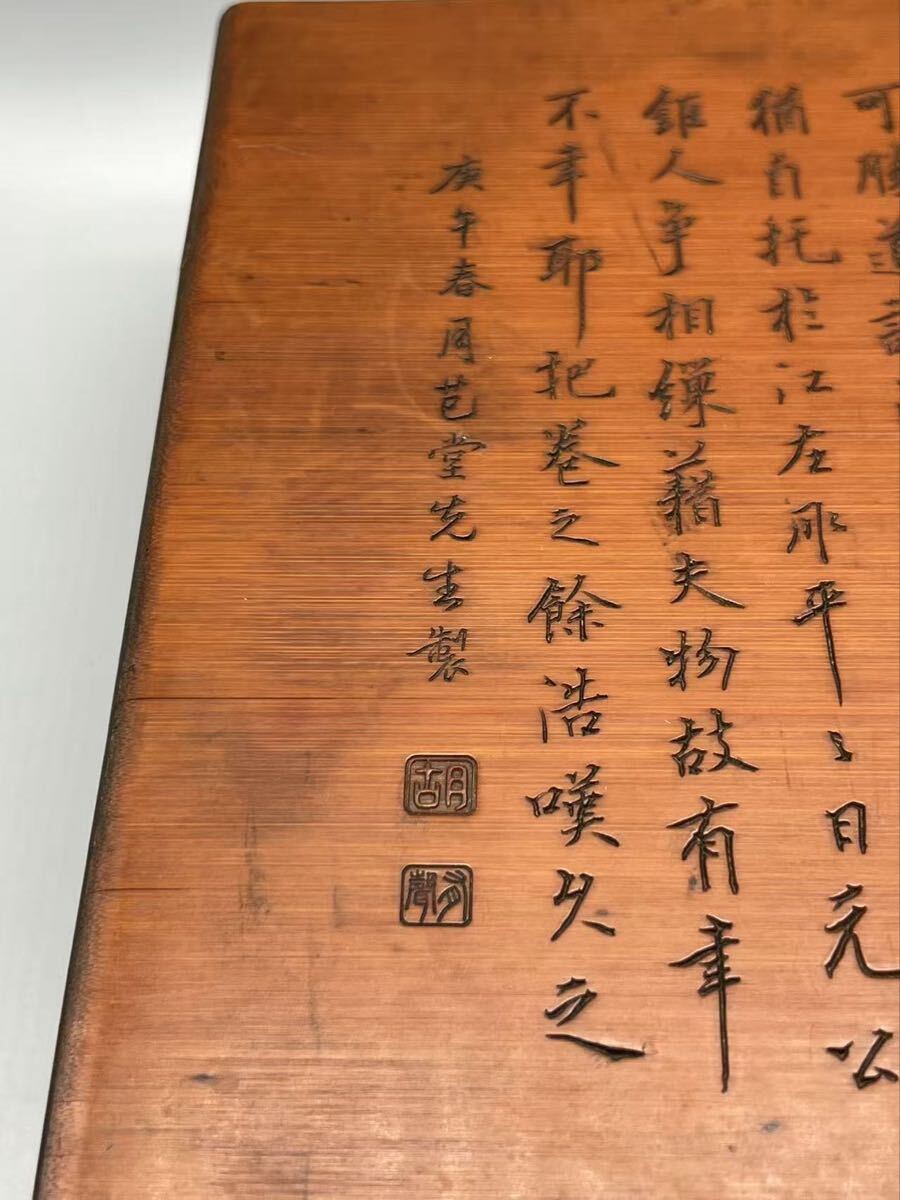 可勝道
猶自托於江左平〻日元公
鉅人爭相繅藉夫物故有幸
不幸耶把卷之餘浩嘆久之
庚午春月芑堂先生製
胡